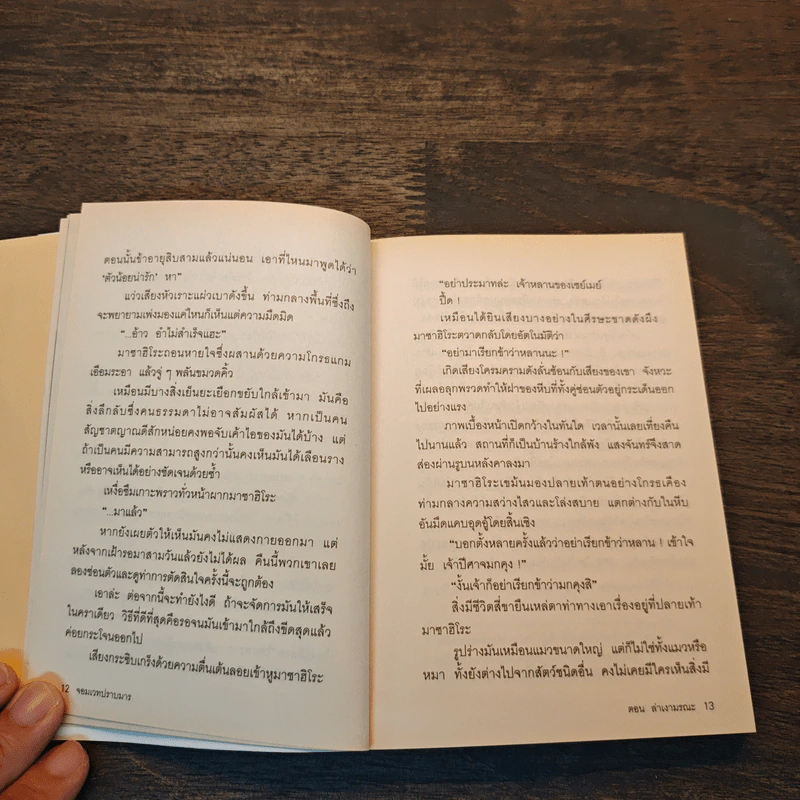 ตอนนั้นข้าอายุสิบสามแล้วแน่นอน เอาที่ไหนมาพูดได้ว่า
'ตัวน้อยน่ารัก' หา"
แว่วเสียงหัวเราะแผ่วเบาดังขึ้น ท่ามกลางพื้นที่ซึ่งถึง
จะพยายามเพ่งมองแค่ไหนก็เห็นแต่ความมืดมิด
"...อ้าว อำไม่สำเร็จแฮะ"
มาซาฮิโระถอนหายใจซึ่งผสานด้วยความโกรธแกม
เอือมระอา แล้วจู่ ๆ พลันขมวดคิ้ว
เหมือนมีบางสิ่งเย็นยะเยือกขยับใกล้เข้ามา มันคือ
สิ่งลึกลับซึ่งคนธรรมดาไม่อาจสัมผัสได้ หากเป็นคน
สัญชาตญาณดีสักหน่อยคงพอจับเค้าไอของมันได้บ้าง แต่
ถ้าเป็นคนมีความสามารถสูงกว่านั้นคงเห็นมันได้เลือนราง
หรืออาจเห็นได้อย่างชัดเจนด้วยซ้ำ
เหงื่อซึมเกาะพราวทั่วหน้าผากมาซาฮิโระ
"...มาแล้ว"
หากยังเผยตัวให้เห็นมันคงไม่แสดงกายออกมา แต่
หลังจากเฝ้ารอมาสามวันแล้วยังไม่ได้ผล คืนนี้พวกเขาเลย
ลองซ่อนตัวและดูท่าการตัดสินใจครั้งนี้จะถูกต้อง
เอาล่ะ ต่อจากนี้จะทำยังไงดี ถ้าจะจัดการมันให้เสร็จ
ในคราเดียว วิธีที่ดีที่สุดคือรอจนมันเข้ามาใกล้ถึงขีดสุดแล้ว
ค่อยกระโจนออกไป
เสียงกระซิบเกร็งด้วยความตื่นเต้นลอยเข้าหูมาซาฮิโระ
12 จอมเวทปราบมาร
"อย่าประมาทล่ะ เจ้าหลานของเซย์เมย์
ปี๊ด !
เหมือนได้ยินเสียงบางอย่างในศีรษะขาดดังผึง
มาซาฮิโระตวาดกลับโดยอัตโนมัติว่า
"อย่ามาเรียกข้าว่าหลานนะ !"
เกิดเสียงโครมครามดังลั่นซ้อนกับเสียงของเขา จังหวะ
ที่เผลอลุกพรวดทำให้ฝาของหีบที่ทั้งคู่ซ่อนตัวอยู่กระเด็นออก
ไปอย่างแรง
ภาพเบื้องหน้าเปิดกว้างในทันใด เวลานั้นเลยเที่ยงคืน
ไปนานแล้ว สถานที่ก็เป็นบ้านร้างใกล้พัง แสงจันทร์จึงสาด
ส่องผ่านรูบนหลังคาลงมา
มาซาฮิโระเขม้นมองปลายเท้าตนอย่างโกรธเคือง
ท่ามกลางความสว่างไสวและโล่งสบาย แตกต่างกับในหีบ
อันมืดแคบอุดอู้โดยสิ้นเชิง
"บอกตั้งหลายครั้งแล้วว่าอย่าเรียกข้าว่าหลาน ! เข้าใจ
มั้ย เจ้าปีศาจมกคุง !"
"งั้นเจ้าก็อย่าเรียกข้าว่ามกคุงสิ"
สิ่งมีชีวิตสี่ขายืนเหล่ตาท่าทางเอาเรื่องอยู่ที่ปลายเท้า
มาซาฮิโระ
รูปร่างมันเหมือนแมวขนาดใหญ่ แต่ก็ไม่ใช่ทั้งแมวหรือ
หมา ทั้งยังต่างไปจากสัตว์ชนิดอื่น คงไม่เคยมีใครเห็นสิ่งมี
ตอน ล่าเงามรณะ 13